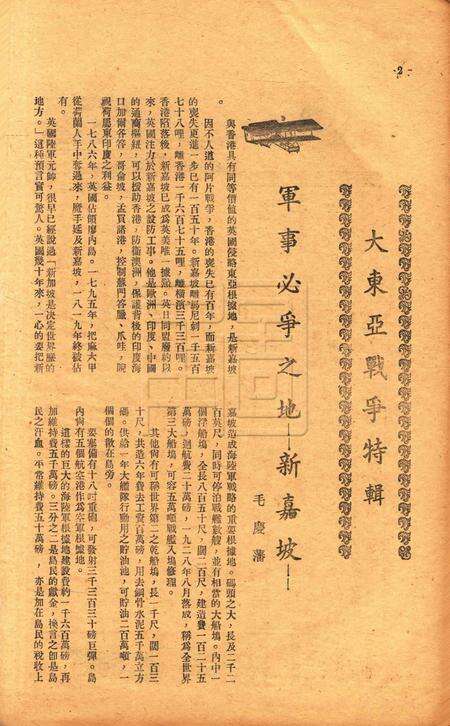 -2-
大東亞戰爭特輯
軍事必爭之地—新嘉坡—
毛慶藩
與香港具有同等價值的英國侵略東亞根據地，是新嘉坡
。
因不人道的阿片戰爭，香港的喪失已有百年，而新嘉坡
的喪失更進一步已有一百五十年。新嘉坡離西貢一千五百
七十八哩，離香港一千六百七十五哩，離橫濱三千三百哩。
香港陷落後，新嘉坡已成為英美唯一據點。英日同盟廢約以
來，英國注力於新嘉坡之設防工事。他是歐洲、印度、中國
的通商樞紐，可以援助香港，防衛澳洲，保護背後的印度海
口加爾各答，哥侖坡，孟買諸港，控制蘇門答臘、爪哇，睨
視荷屬東印度之利益。
一七八六年，英國佔領摩內島。一七九五年，把麻六甲
從荷蘭人手中奪過來，壓手延及新嘉坡，一八一九年終被佔
有。
英國陸軍元帥，很早已經說過「新加坡是決定世界歷的
地方。」這種預言實可驚人。英國幾十年來，一心的要把新
嘉坡造成海陸軍戰略的重要根據地。碼頭之大，長及二千二
百英尺，同時可停泊戰艦數艘，並有相當的大船塢。內中一
個浮船塢，全長八百五十尺，闊二百尺，建造費一百二十五
萬磅，迴航費二十萬磅，一九二八年八月落成，稱為全世界
第三大船塢，可容五萬噸戰艦入塢修理。
其他尚有可稱世界第二之乾船塢，長一千尺，闊一百三
十尺，共造六年費去工資百萬磅，用去鋼骨水泥五千萬立方
碼。供給一年大艦隊行動用之貯油池，可貯油二百萬噸，一
個個的散在島旁。
要塞備有十八吋重砲，可發射三千三百三十磅巨彈。島
內尚有五個航空港作為空軍根據地。
這樣的巨大的海陸軍根據地建設費約一千六百萬磅，再
加維持費五千萬磅。三分之二是島民的獻金，換言之卽是島
民之汗血。平常維持費五十萬磅，亦是加在島民的稅收上